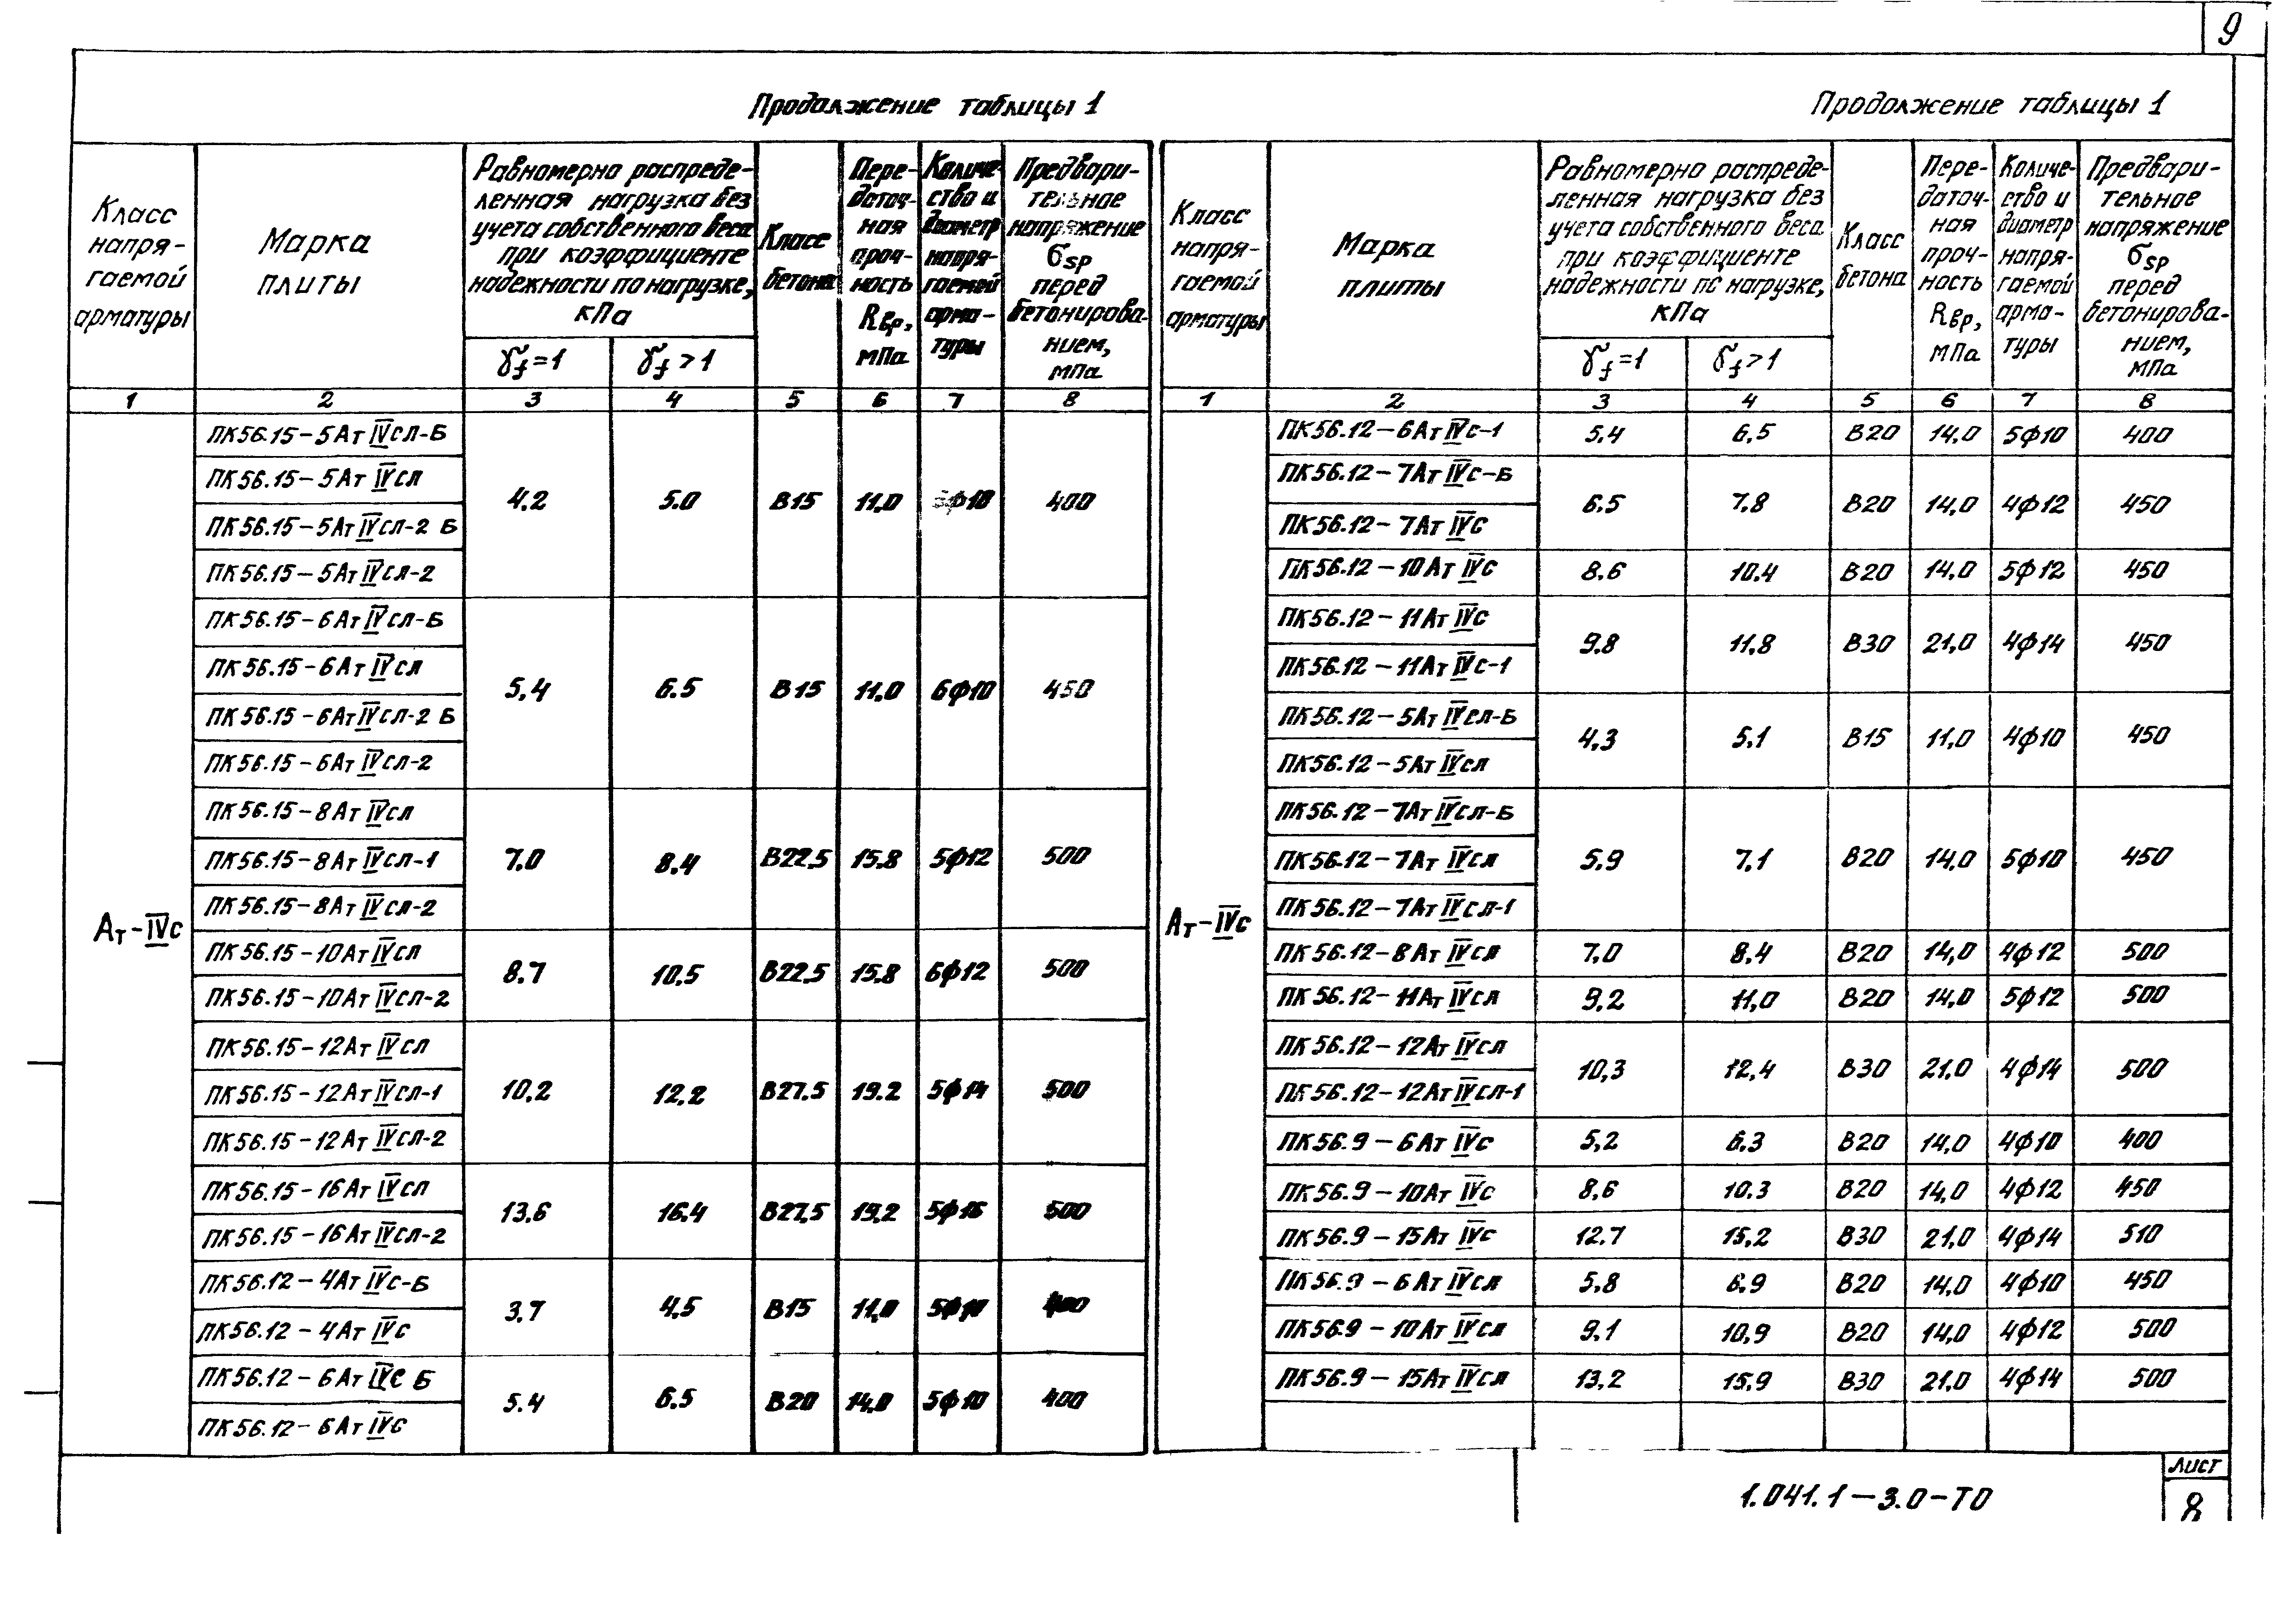 9
Продолжение таблицы 1
Класс напря-гаемой арматуры
Марка плиты
Равномерно распреде-ленная нагрузка без учета собственного веса при коэффициенте надежности по нагрузке, кПа
γf=1
γf>1
Класс бетона
Пере-даточ-ная проч-ность Rвр, МПа
Количе-ство и диаметр напря-гаемой арма-туры
Предвари-тельное напряжение σsp перед бетонирова-нием, МПа
1 2 3 4 5 6 7 8
Ат-IVс
ПК56.15-5АтIVсл-Б
ПК56.15-5АтIVсл
ПК56.15-5АтIVсл-2 Б
ПК56.15-5АтIVсл-2
4.2 5.0 В15 11.0 400
ПК56.15-6АтIVсл-Б
ПК56.15-6АтIVсл
ПК56.15-6АтIVсл-2 Б
ПК56.15-6АтIVсл-2
5.4 6.5 В15 11.0 6ф10 450
ПК56.15-8АтIVсл
ПК56.15-8АтIVсл-1
ПК56.15-8АтIVсл-2
7.0 8.4 В22.5 15.8 5ф12 500
ПК56.15-10АтIVсл
ПК56.15-10АтIVсл-2
8.7 10.5 В22.5 15.8 6ф12 500
ПК56.15-12АтIVсл
ПК56.15-12АтIVсл-1
ПК56.15-12АтIVсл-2
10,2 12,2 В27.5 19.2 5ф14 500
ПК56.15-16АтIVсл
ПК56.15-16АтIVсл-2
13.6 16.4 В27,5 19.2 5ф16 500
ПК56.12-4АтIVс-Б
ПК56.12-4АтIVс
3.7 4.5 В15 11,0 5ф10 400
ПК56.12-6АтIVс Б
ПК56.12-6АтIVс
5.4 6.5 В20 14.0 5ф10 400
Продолжение таблицы 1
Класс напря-гаемой арматуры
Марка плиты
Равномерно распреде-ленная нагрузка без учета собственного веса при коэффициенте надежности по нагрузке, кПа
γf=1
γf>1
Класс бетона
Пере-даточ-ная проч-ность Rвр, МПа
Количе-ство и диаметр напря-гаемой арма-туры
Предвари-тельное напряжение σsp перед бетонирова-нием, МПа
1 2 3 4 5 6 7 8
Ат-IVс
ПК56.12-6АтIVс-1 5.4 6,5 В20 14.0 5ф10 400
ПК56.12-7АтIVс-Б
ПК56.12-7АтIVс
6.5 7.8 В20 14,0 4ф12 450
ПК56.12-10АтIVс 8.6 10.4 В20 14.0 5ф12 450
ПК56.12-11АтIVс
ПК56.12-11АтIVс-1
9.8 11.8 В30 21,0 4ф14 450
ПК56.12-5АтIVсл-Б
ПК56.12-5АтIVсл
4.3 5.1 В15 11,0 4ф10 450
ПК56.12-7АтIVсл-Б
ПК56.12-7АтIVсл
ПК56.12-7АтIVсл-1
5.9 7.1 В20 14,0 5ф10 450
ПК56.12-8АтIVсл 7.0 8.4 В20 14,0 4ф12 500
ПК56.12-11АтIVсл 9.2 11,0 В20 14.0 5ф12 500
ПК56.12-12АтIVсл
ПК56.12-12АтIVсл-1
10,3 12,4 В30 21.0 4ф14 500
ПК56.9-6АтIVс 5,2 6.3 В20 14.0 4ф10 400
ПК56.9-10АтIVс 8,6 10.3 В20 14,0 4ф12 450
ПК56.9-15АтIVс 12.7 15,2 В30 21,0 4ф14 510
ПК56.9-6АтIVсл 5.8 6.9 В20 14.0 4ф10 450
ПК56.9-10АтIVсл 9.1 10,9 В20 14,0 4ф12 500
ПК56.9-15АтIVсл 13,2 15.9 В30 21,0 4ф14 500
1.041.1-3.0-ТО
Лист
8